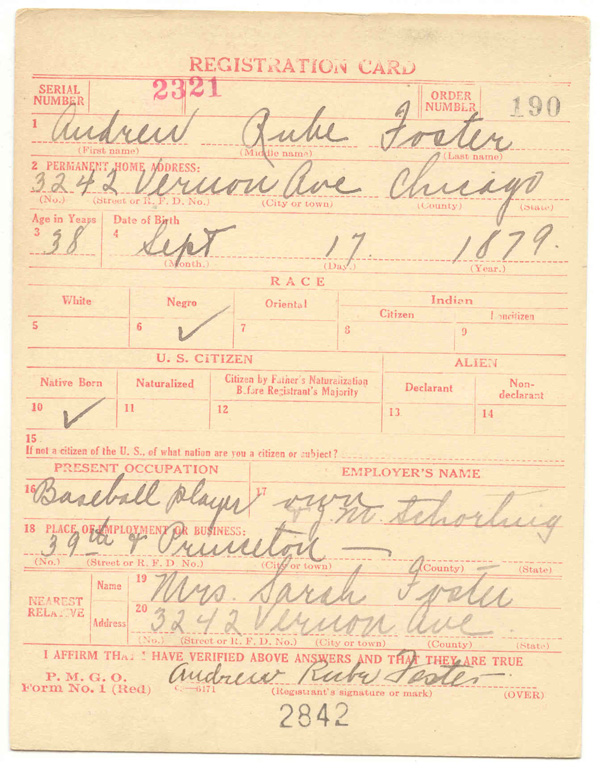 REGISTRATION CARD
SERIAL NUMBER 2321 ORDER NUMBER 190
1 Andrew Rube Foster
(First name) (Middle name) (Last name)
2 PERMANENT HOME ADDRESS:
3242 Vernon Ave Chicago
(No.) (Street or R. F. D. No.) (City or town) (County) (State)
Age in Years Date of Birth
3 38 4 Sept 17. 1879.
(Month.) (Day.) (Year.)
RACE
White Negro Oriental Indian
Citizen Noncitizen
5 6 ✓ 7 8 9
U. S. CITIZEN ALIEN
Native Born Naturalized Citizen by Father's Naturalization Before Registrant's Majority Declarant Non-declarant
10 ✓ 11 12 13 14
15
If not a citizen of the U. S., of what nation are you a citizen or subject?
PRESENT OCCUPATION EMPLOYER'S NAME
16 Baseball player 17 own
J M Schorling
18 PLACE OF EMPLOYMENT OR BUSINESS:
39th & Princeton —
(No.) (Street or R. F. D. No.) (City or town) (County) (State)
NEAREST RELATIVE
Name 19 Mrs. Sarah Foster
Address 20 3242 Vernon Ave.
(No.) (Street or R. F. D. No.) (City or town) (County) (State)
I AFFIRM THAT I HAVE VERIFIED ABOVE ANSWERS AND THAT THEY ARE TRUE
P. M. G. O.
Form No. 1 (Red) C—6171 Andrew Rube Foster
(Registrant's signature or mark) (OVER)
2842